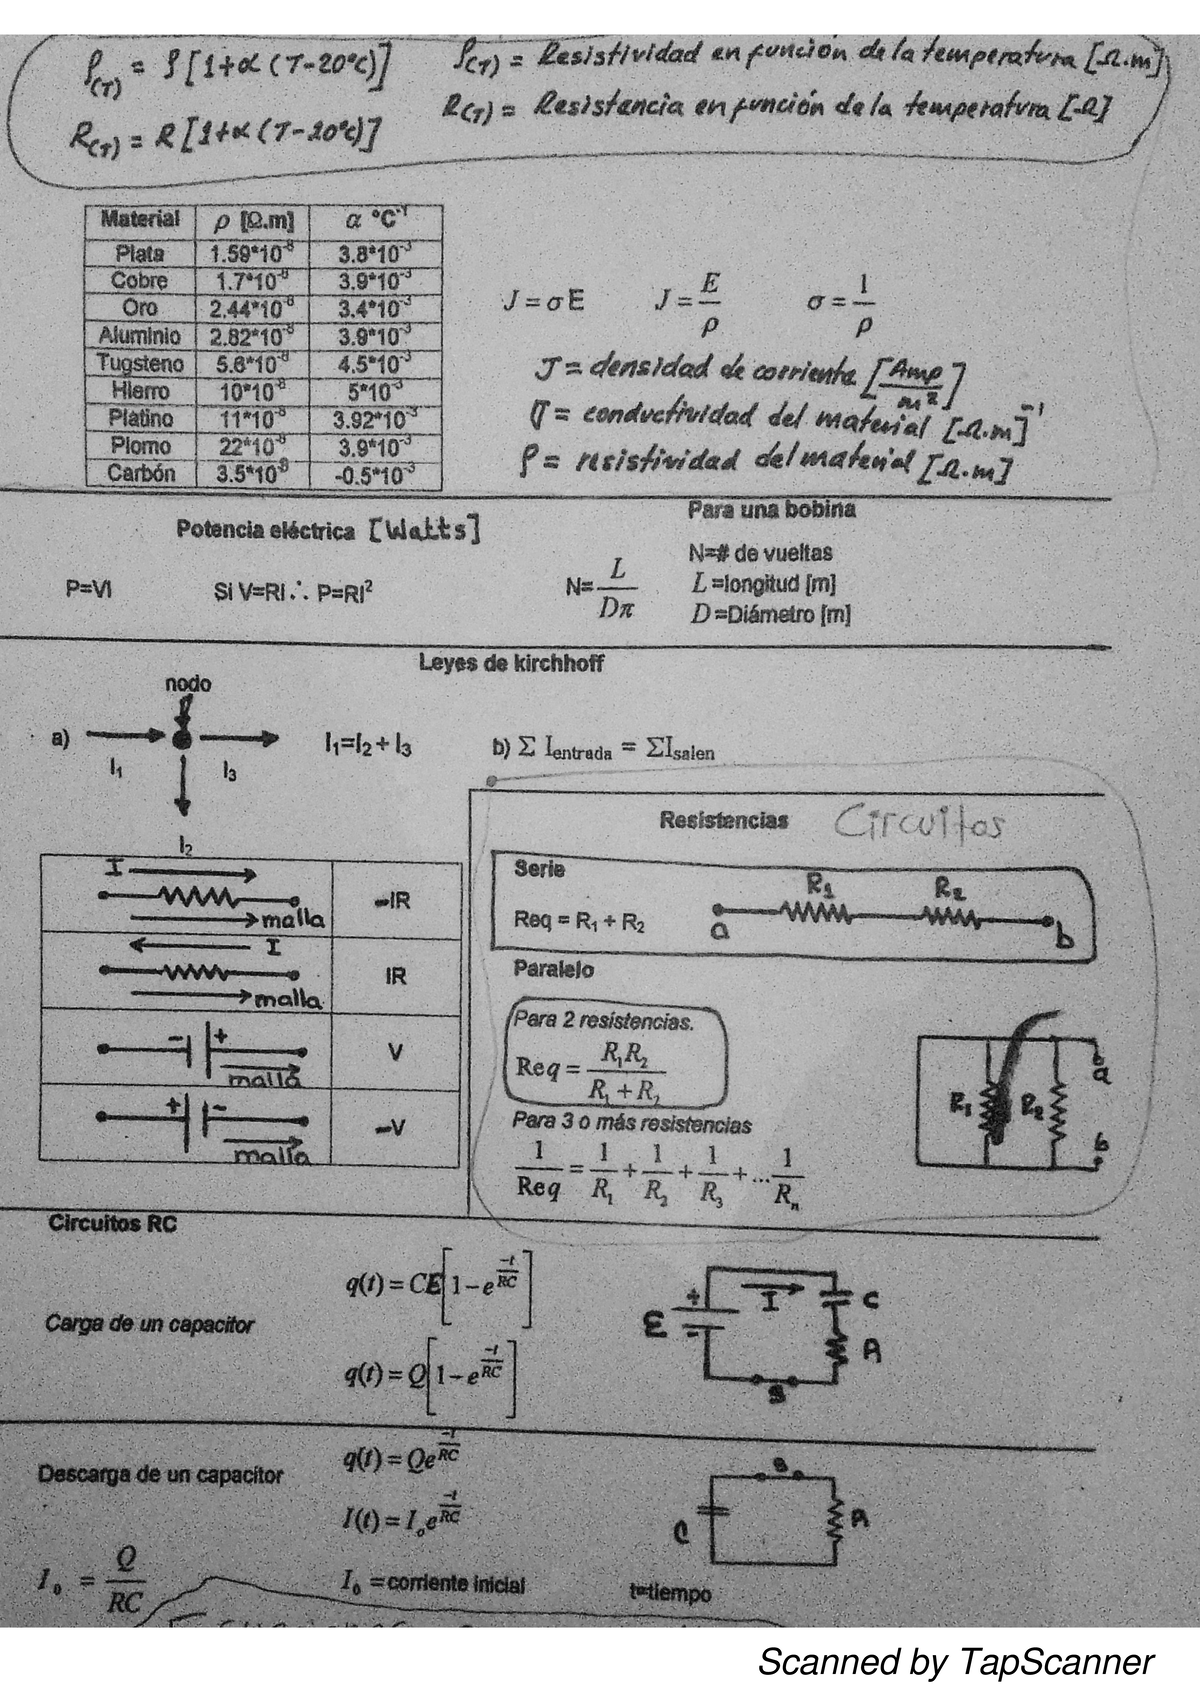 ρ(T) = ρ[1+α(T-20°C)]
ρ(T) = Resistividad en función de la temperatura [Ω.m]
R(T) = R[1+α(T-20°C)]
R(T) = Resistencia en función de la temperatura [Ω]
Material ρ [Ω.m] α °C⁻¹
Plata 1.59*10⁻⁸ 3.8*10⁻³
Cobre 1.7*10⁻⁸ 3.9*10⁻³
Oro 2.44*10⁻⁸ 3.4*10⁻³
Aluminio 2.82*10⁻⁸ 3.9*10⁻³
Tugsteno 5.6*10⁻⁸ 4.5*10⁻³
Hierro 10*10⁻⁸ 5*10⁻³
Platino 11*10⁻⁸ 3.92*10⁻³
Plomo 22*10⁻⁸ 3.9*10⁻³
Carbón 3.5*10⁻⁸ -0.5*10⁻³
J = σE J = E/ρ σ = 1/ρ
J = densidad de corriente [Amp/m²]
σ = conductividad del material [Ω.m]⁻¹
ρ = resistividad del material [Ω.m]
Potencia eléctrica [Watts]
P=VI Si V=RI ∴ P=RI²
Para una bobina
N= L/Dπ
N=# de vueltas
L=longitud [m]
D=Diámetro [m]
Leyes de kirchhoff
nodo
a) I₁ I₃ I₂
I₁=I₂+I₃
b) Σ Ientrada = ΣIsalen
I malla -IR
I malla IR
- + malla V
+ - malla -V
Resistencias Circuitos
Serie
Req = R₁ + R₂
a R₁ R₂ b
Paralelo
Para 2 resistencias.
Req = R₁R₂/(R₁+R₂)
Para 3 o más resistencias
1/Req = 1/R₁ + 1/R₂ + 1/R₃ + ... 1/Rn
R₁ R₂ a b
Circuitos RC
Carga de un capacitor
q(t) = CE[1-e^(-t/RC)]
q(t) = Q[1-e^(-t/RC)]
E + - I C R S
Descarga de un capacitor
q(t) = Qe^(-t/RC)
I(t) = I₀e^(-t/RC)
C S R
I₀ = Q/RC
I₀ =corriente inicial
t=tiempo
Scanned by TapScanner